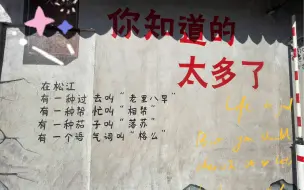 你知道的
太多了
在松江
有一种过去叫“老里八早”
有一种帮忙叫“相帮”
有一种茄子叫“落苏”
有一个语气词叫“格么”